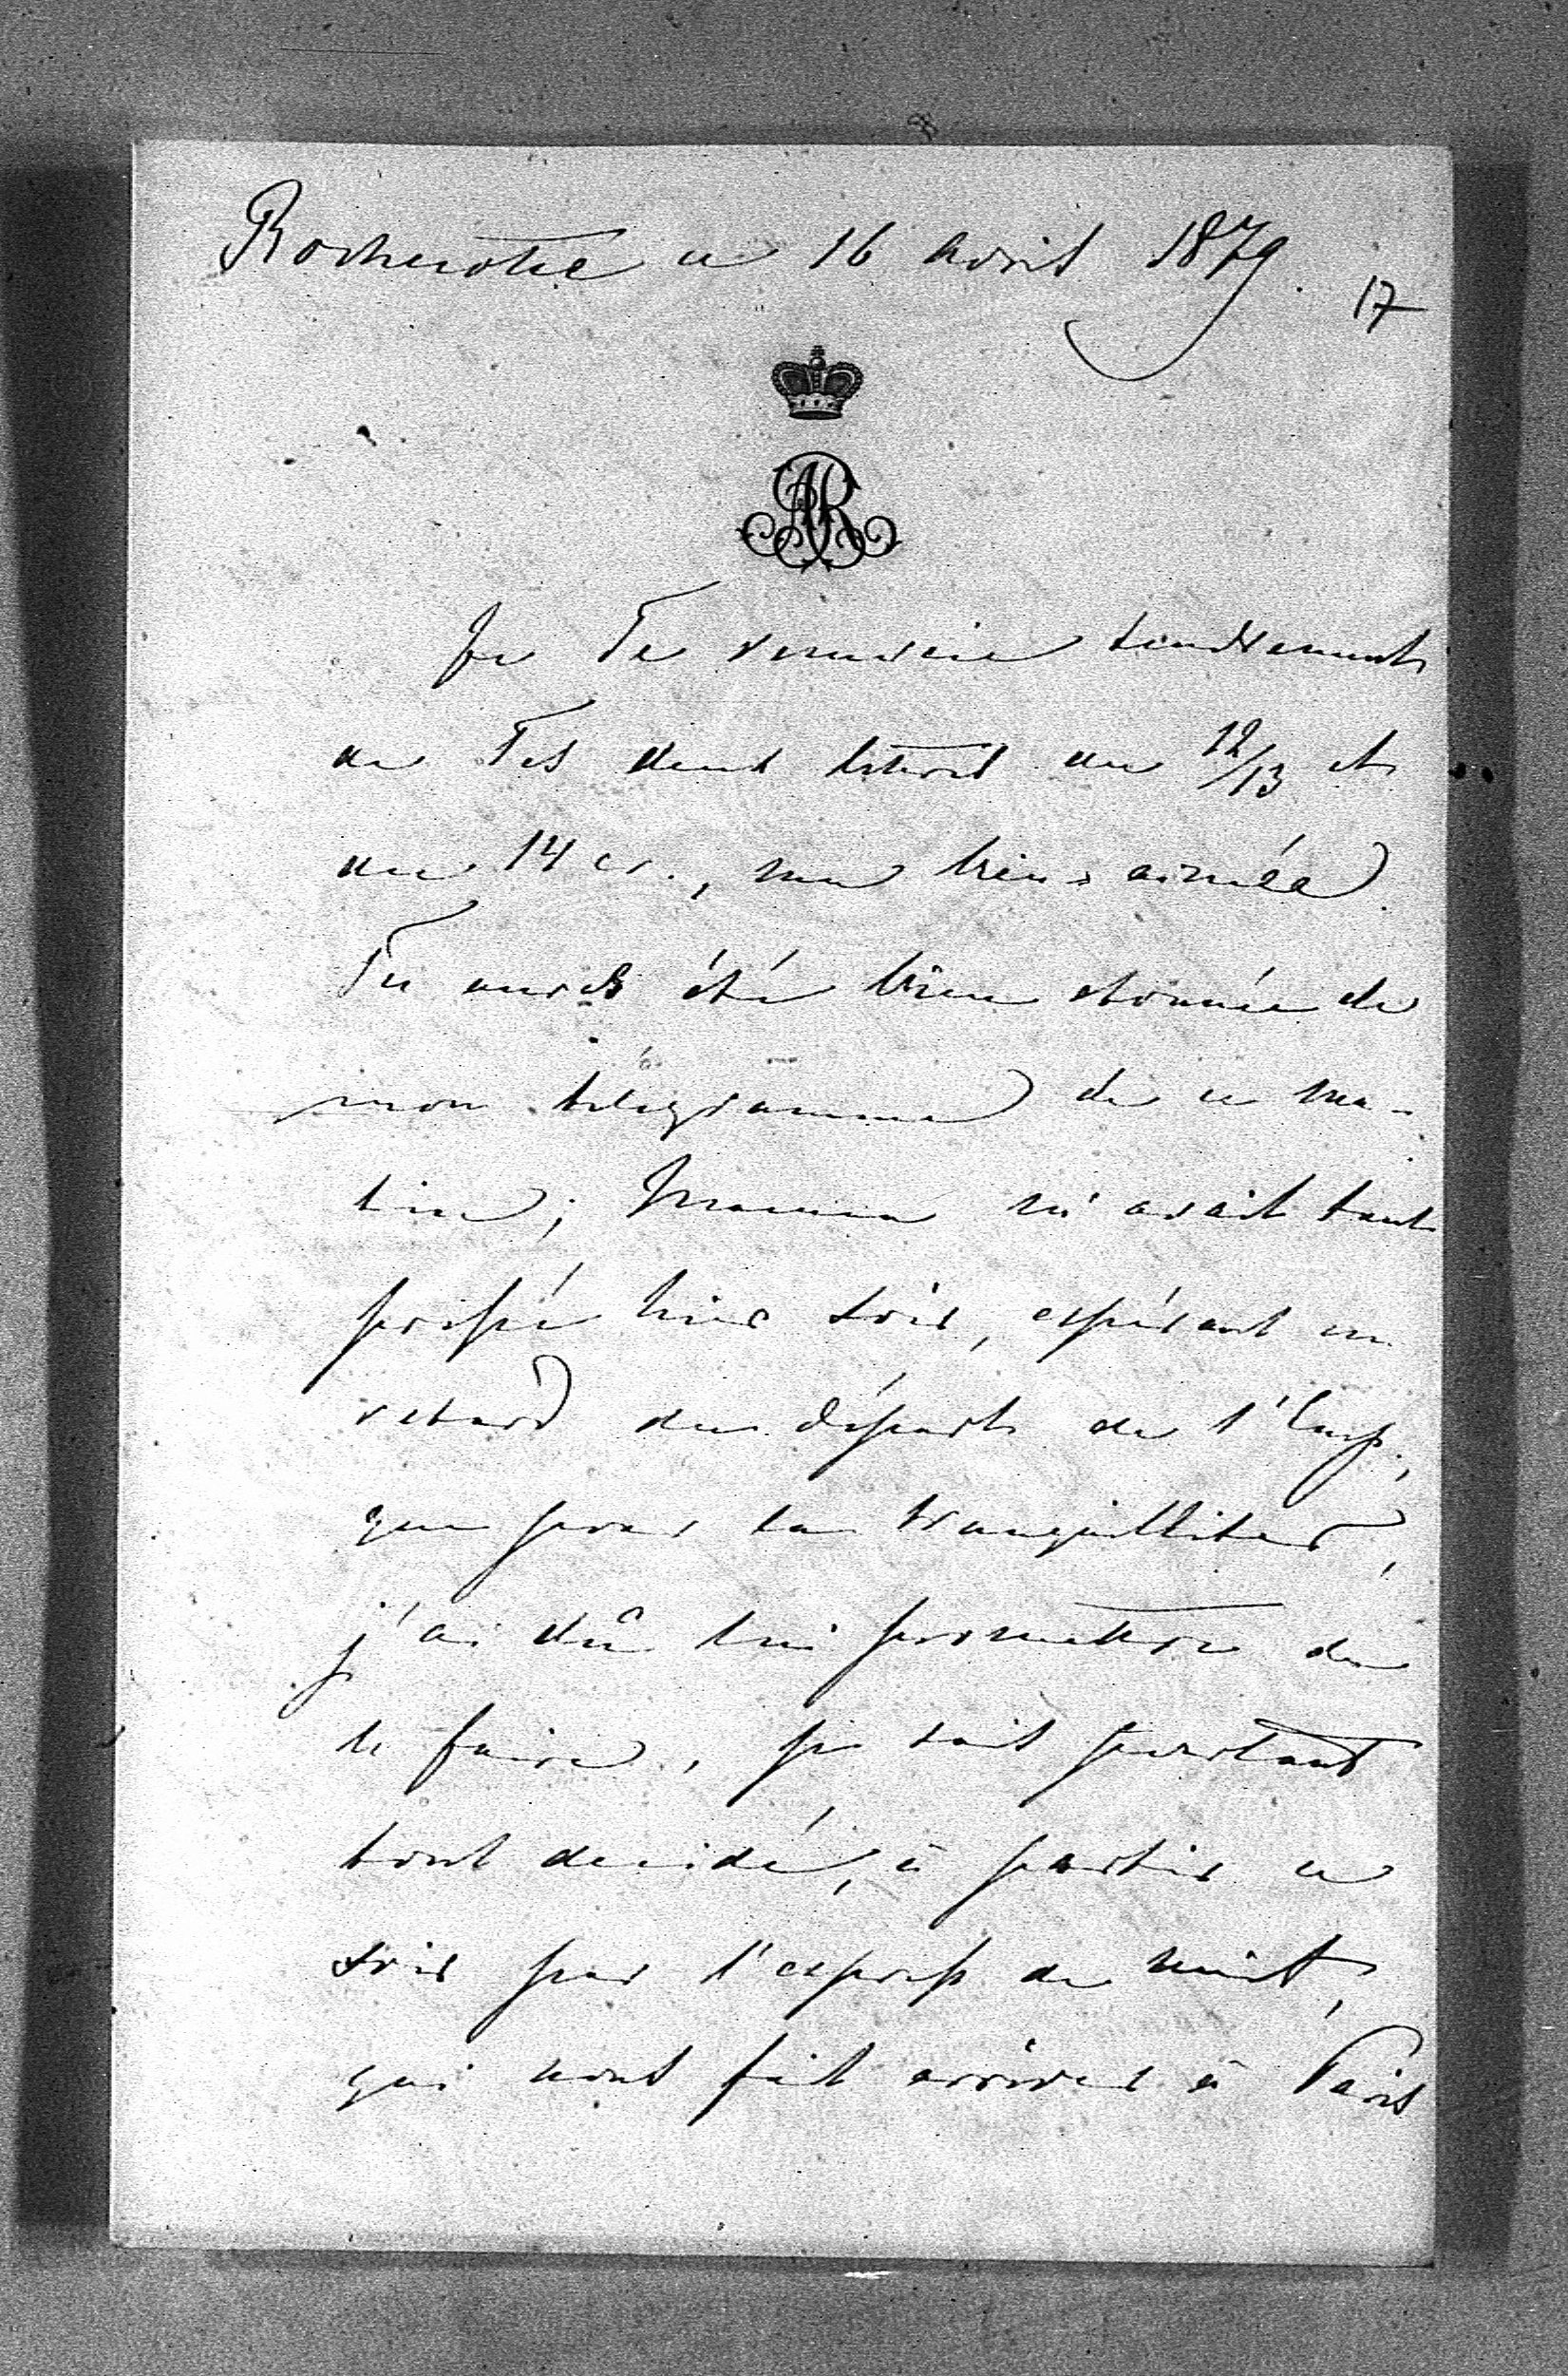 Rochecotte ce 16 Avril 1879.
17
AR
Je Te remercie tendrement
de Tes deux lettres du 12/13 et
du 14 cr., ma bien-aimée.
Tu auras été bien étonnée de
mon télégramme de ce ma-
tin; Maman m'avait tant
pressé hier soir, espérant un
retard du départ de l'Emp.,
que pour la tranquilliser,
j'ai dû lui promettre de
le faire. je suis pourtant
tout decidé, à partir ce
soir par l'express de nuit,
qui nous fait arriver à Paris